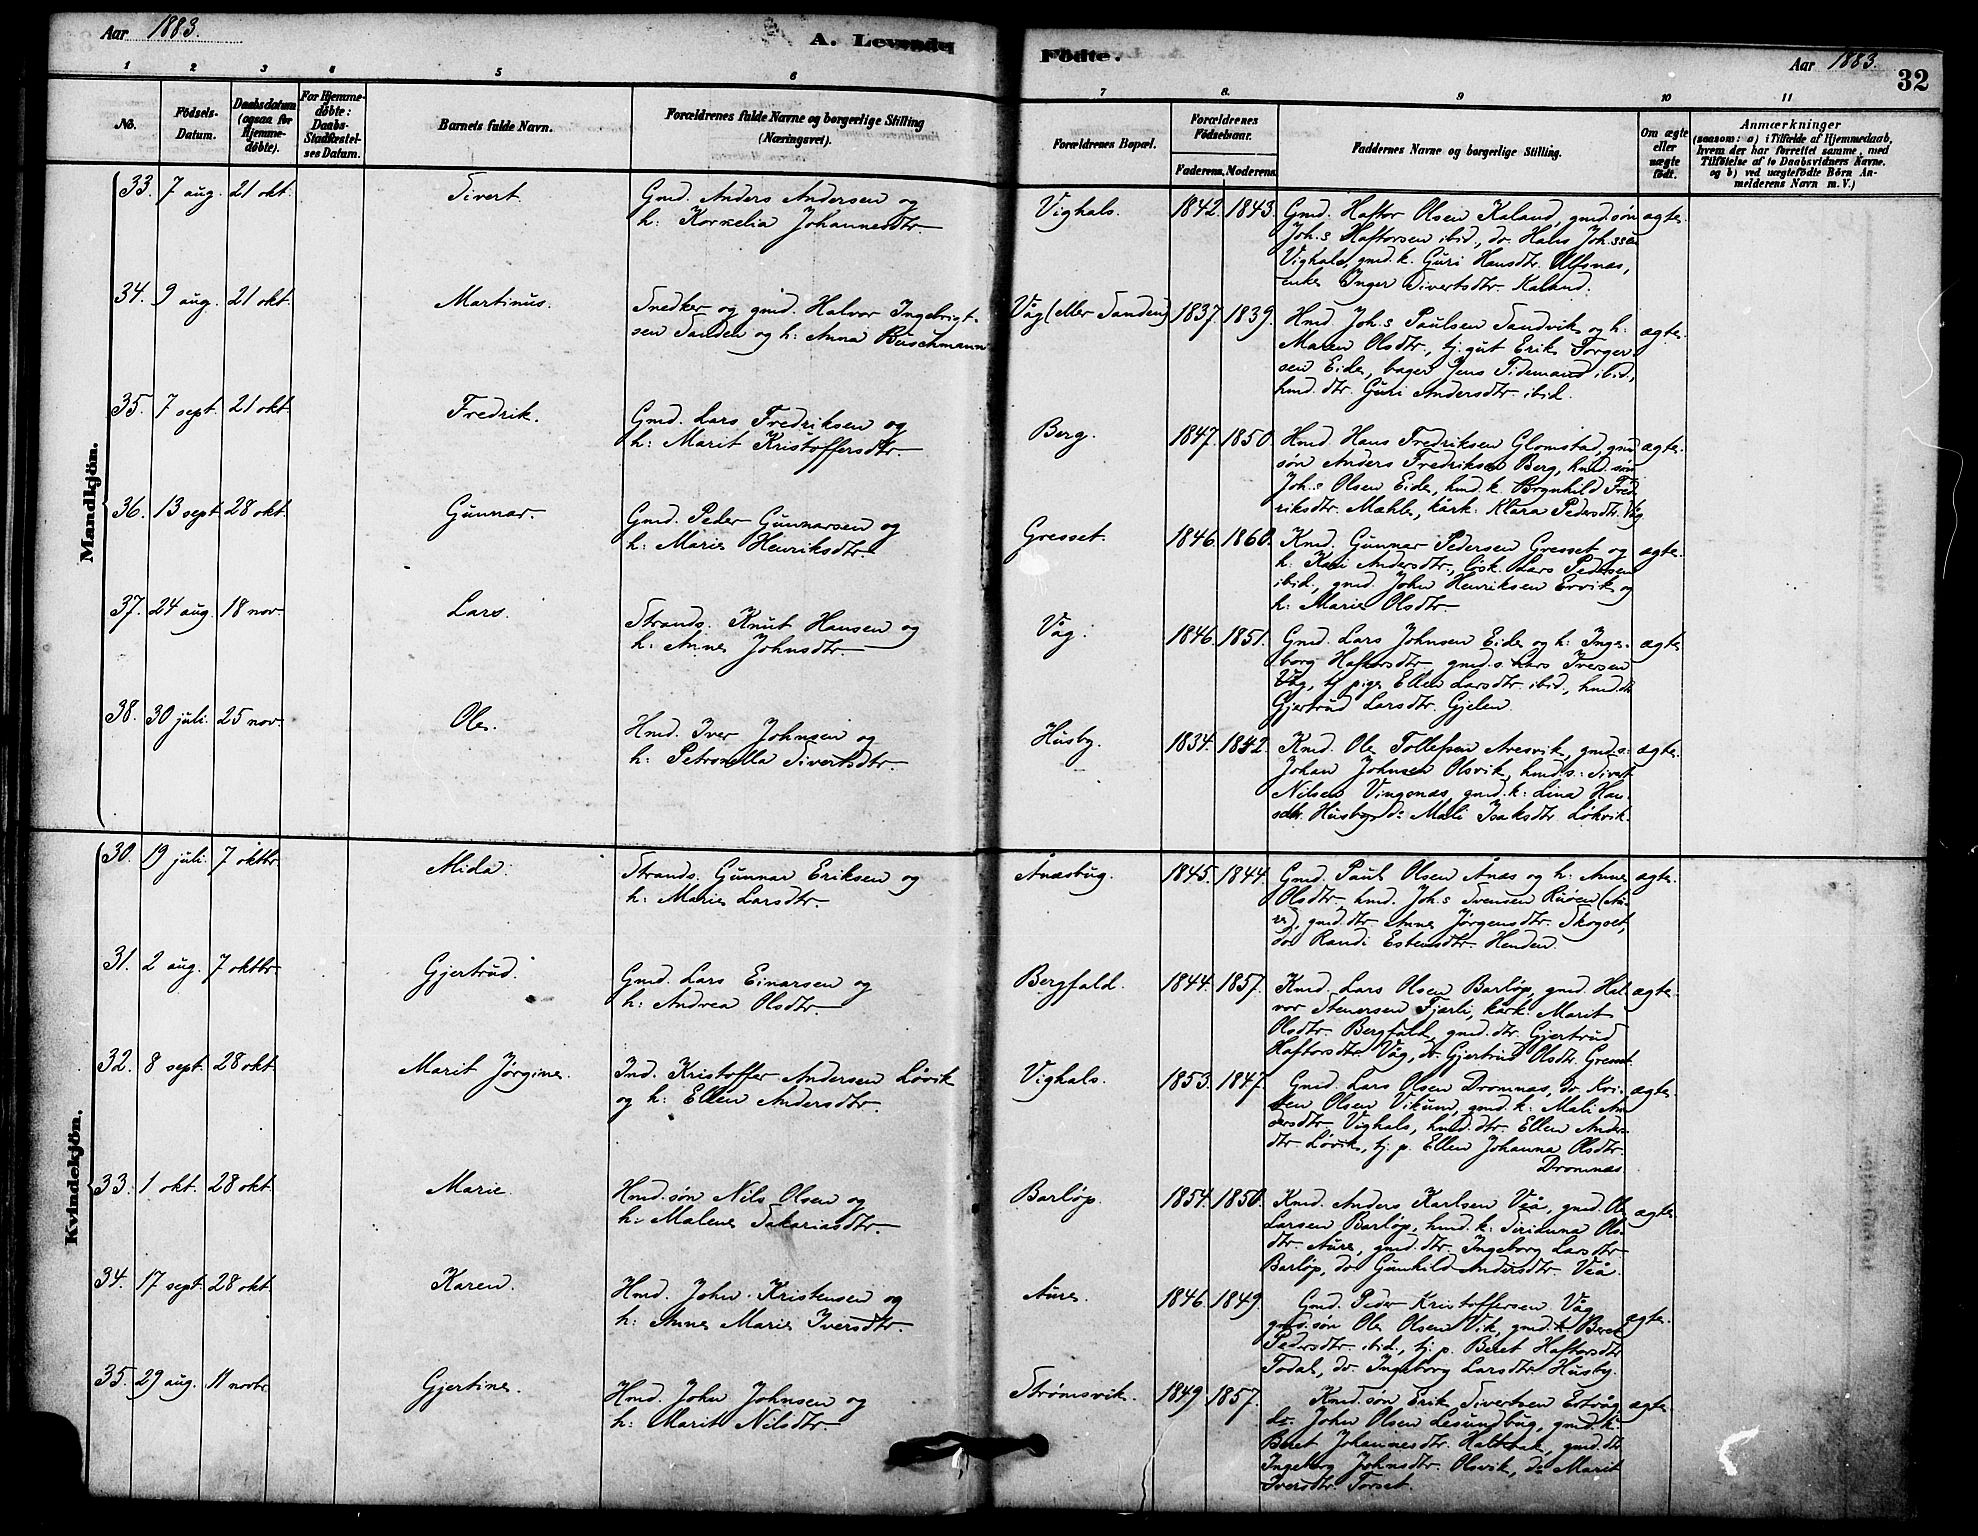 Aar 1883.
A. Levende
1 2 3 4 5 6
No.
Födsels-
Datum.
Daabsdatum
(ogsaa for
Hjemme-
döbte).
For Hjemme-
döbte:
Daabs-
Stadfæstel-
ses Datum.
Barnets fulde Navn.
Forældrenes fulde Navne og borgerlige Stilling
(Næringsvei).
Mandkjön.
33. 7 aug. 21 okt. Sivert Gmd. Anders Andersen og
h: Kornelia Johannesdtr
34. 9 aug. 21 okt. Martinus. Snedker og gmd. Halvor Ingebrigt-
sen Sanden og h: Anna Buschmann
35. 7 sept. 21 okt. Fredrik. Gmd. Lars Fredriksen og
h: Marit Kristoffersdtr.
36. 13 sept 28 okt. Gunnar. Gmd. Peder Gunnarsen og
h: Marie Henriksdtr
37. 24 aug. 18 nov. Lars. Strands. Knut Hansen og
h: Anne Johnsdtr.
38. 30 juli. 25 nov. Ole. Hmd. Iver Johnsen og
h: Petronella Sivertsdtr.
Kvindekjön.
30. 19 juli. 7 oktbr Mida. Strands. Gunnar Eriksen og
h: Marie Larsdtr.
31. 2 aug. 7 oktbr Gjertrud. Gmd. Lars Einarsen og
h: Andrea Olsdtr.
32. 8 sept. 28 okt Marit Jørgine. Ind. Kristoffer Andersen Løvik
og h: Ellen Andersdtr.
33. 1 okt. 28 okt. Marie. Hmd. søn Nils Olsen og
h: Malene Sakariasdtr.
34. 17 sept. 28 okt. Karen. Hmd. John Kristensen og
h: Anne Marie Iversdtr.
35. 29 aug. 11 novbr. Gjertine. Hmd. John Johnsen og
h: Marit Nilsdtr.
Födte.
Aar 1883.
32
7 8. 9 10 11
Forældrenes Bopæl.
Forældrenes
Födselsaar.
Faderens. Moderens.
Faddernes Navne og borgerlige Stilling.
Om ægte
eller
uægte
födt.
Anmærkninger
(saasom: a) i Tilfælde af Hjemmedaab,
hvem der har forrettet samme, med
Tilföielse af to Daabsvidners Navne.
og b) ved uægtefödte Börn An-
melderens Navn m. V.)
Vighals. 1842. 1843. Gmd. Haftor Olsen Kaland, gmd. søn ægte.
Joh.s Haftorsen ibid., do. Hals Joh.ssen
Vighals, gmd. k. Guri Hansdtr. Ulfsnæs,
enke Inger Sivertsdtr. Kaland.
Våg (eller Sanden) 1837. 1839. Hmd. Joh.s Paulsen Sandvik og h: ægte.
Maren Olsdtr., tj. gut Erik Torger-
sen Eide, bager Jens Tidemand ibid.,
hmd. dtr. Guri Andersdtr. ibid.
Berg. 1847. 1850. Hmd. Hans Fredriksen Glomstad, gmd ægte.
søn Anders Fredriksen Berg, hmd. søn
Joh.s Olsen Eide, hmd. k. Brynhild Fred-
riksdtr. Mæhle, kårk: Klara Pedersdtr. Våg
Gresset. 1846. 1860. Kmd. Gunnar Pedersen Gresset og ægte.
h: Kari Andersdtr., fisk. Lars Pedersen
ibid., gmd. John Henriksen Ervik og
h: Marie Olsdtr.
Våg. 1846. 1851. Gmd. Lars Johnsen Eide og h: Inge- ægte
borg Haftorsdtr, gmd. s. Lars Iversen
Våg, tj. pige Ellen Larsdtr. ibid., hmd. dtr
Gjertrud Larsdtr. Gjelen.
Husby. 1834. 1842. Kmd. Ole Tollefsen Aresvik, gmd. s: ægte.
Johan Johnsen Olsvik, hmd. s: Sivert
Nilsen Vingenæs, gmd. k: Lina Han-
sdtr. Husby, do: Mali Isaksdtr. Løkvik.
Ånæsbug. 1845. 1844. Gmd. Paul Olsen Ånæs og h: Anne ægte.
Olsdtr., hmd. Joh.s Svensen Ruøen (Au-
re), gmd. dtr. Anne Jørgensdtr. Skogset,
do Randi Estensdtr. Henden
Bergfald. 1844. 1857. Kmd. Lars Olsen Barløp, gmd. Hal- ægte
vor Stenersen Fjærli, kårk: Marit
Olsdtr. Bergfald, gmd. dtr. Gjertrud
Haftorsdtr. Våg, do: Gjertrud Olsdtr. Gresset
Vighals. 1853. 1847. Gmd. Lars Olsen Dromnæs, do
Olsen Vikum, gmd. k: Mali An- ægte.
dersdtr. Vighals, hmd. dtr. Ellen Anders-
dtr. Løvik, tj. p. Ellen Johanna Olsdtr.
Dromnæs
Barløp. 1854. 1850. Kmd. Anders Karlsen Veå, gmd. Ole ægte.
Larsen Barløp, hmd. k: Sirianna Ols-
dtr. Aure, gmd. dtr. Ingeborg Larsdtr
Barløp, do Gunhild Andersdtr. Veå
Aure. 1846. 1849. Gmd. Peder Kristoffersen Våg
gmd. søn Ole Olsen Vik, gmd. k. Beret ægte.
Pedersdtr. ibid., tj. p. Beret Haftorsdtr
Todal, do Ingeborg Larsdtr. Husby.
Strømsvik. 1849. 1857. Kmd. søn Erik Sivertsen Estvåg ægte
do: John Olsen Lesundbug, gmd. k:
Beret Johannesdtr. gmd. dtr
Ingeborg Johnsdtr. Olsvik, do Marit
Iversdtr. Torset.